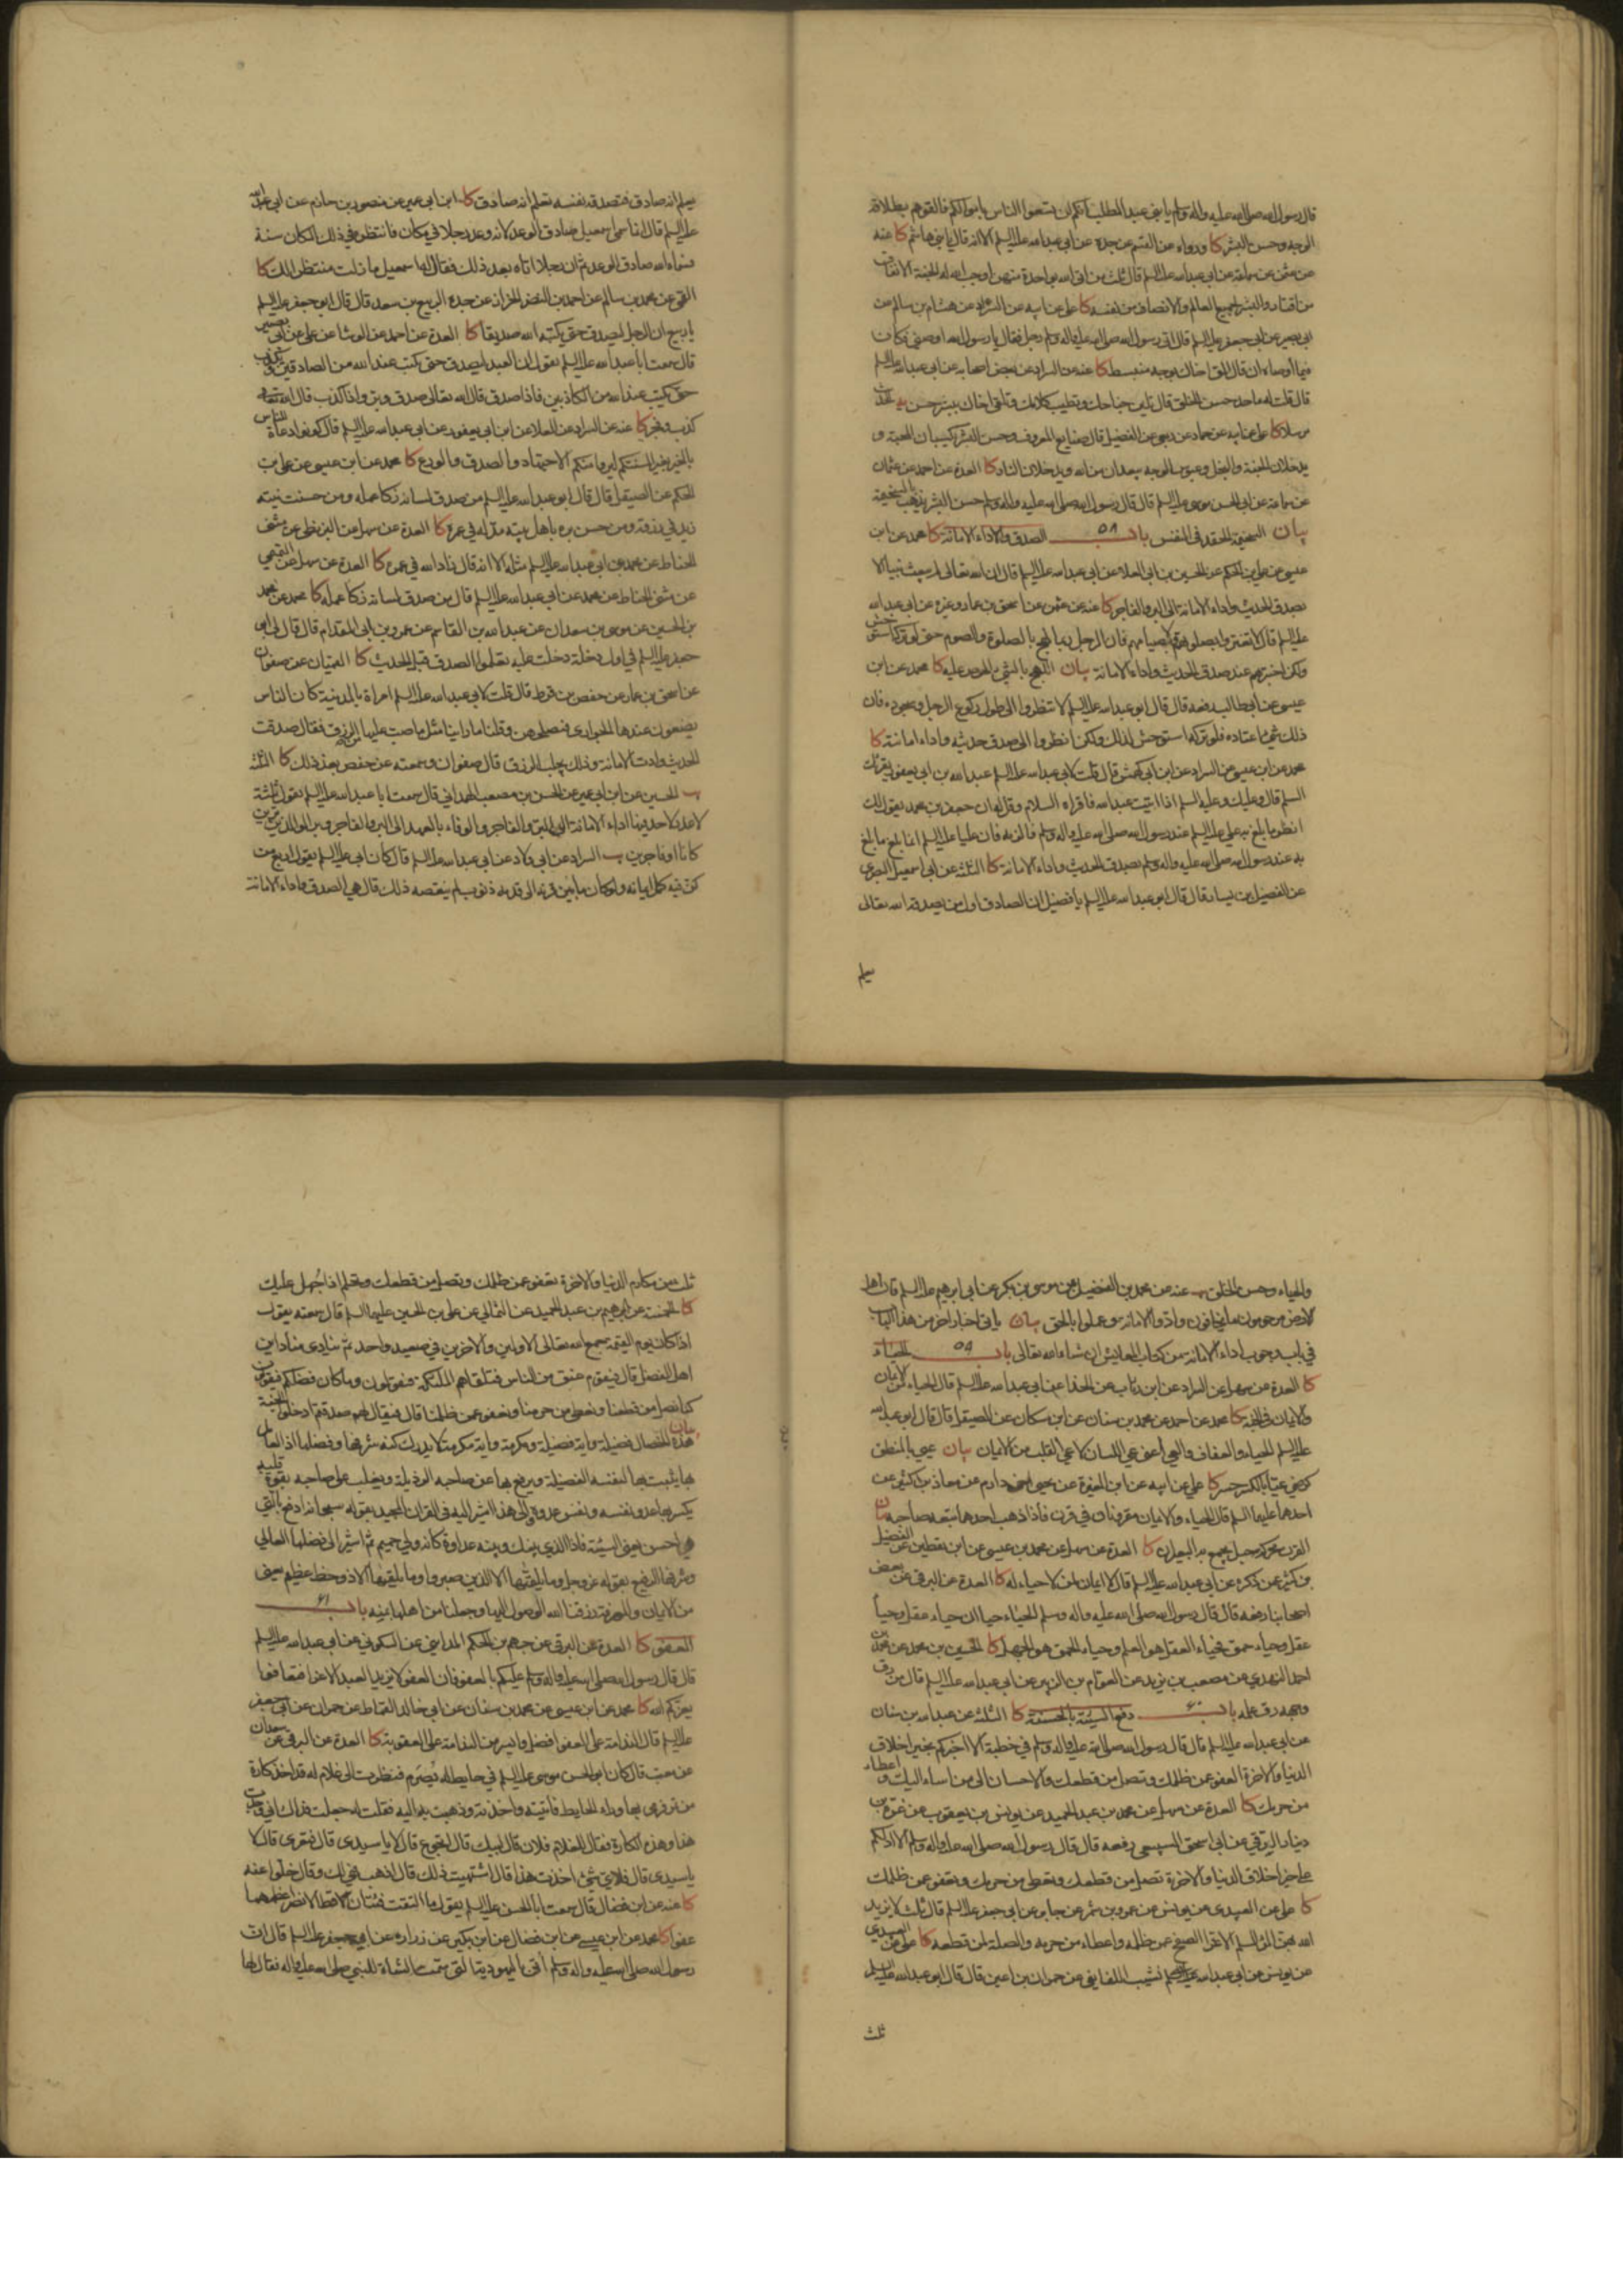 قال رسول الله صلى الله عليه واله وسلم يا بني عبد المطلب انكم لن تسعوا الناس باموالكم فالقوهم بطلاقة
الوجه وحسن البشر كا ورواه عن القسم عن جده عن ابي عبدالله عليه السلم الا انه قال يا بني هاشم كا عنه
عن عثمن عن سماعة عن ابي عبدالله عليه السلم قال ثلث من اتى الله بواحدة منهن اوجب الله له الجنة الانفاق
من اقتار والبشر لجميع العالم والانصاف من نفسه كا علي عن ابيه عن السراد عن هشام بن سالم عن
ابي بصير عن ابي جعفر عليه السلم قال اتى رسول الله صلى الله عليه واله وسلم رجل فقال يا رسول الله اوصني فكان
فيما أوصاه ان قال الق اخاك بوجه منبسط كا عنه عن السراد عن بعض اصحابه عن ابي عبدالله عليه السلم
قال قلت له ما حد حسن الخلق قال تلين جناحك وتطيب كلامك وتلقى اخاك ببشر حسن
مرسلا كا علي عن ابيه عن حماد عن ربعي عن الفضيل قال صنايع المعروف وحسن البشر يكسبان المحبة و
يدخلان الجنة والبخل وعبوس الوجه يبعدان من الله ويدخلان النار كا العدة عن احمد عن عثمان
عن سماعة عن ابي الحسن موسى عليه السلم قال قال رسول الله صلى الله عليه واله وسلم حسن البشر يذهب بالسخيمة
بيان السخيمة الحقد في النفس باب ٥٨ الصدق والاداء الامانة كا محمد عن ابن
عيسى عن علي بن الحكم عن الحسين بن ابي العلاء عن ابي عبدالله عليه السلم قال ان الله تعالى لم يبعث نبيا الا
بصدق الحديث واداء الامانة الى البر والفاجر كا عنه عن عثمن عن اسحق بن عمار وغيره عن ابي عبدالله
عليه السلم قال لا تغتروا بصلوتهم ولا بصيامهم فان الرجل ربما لهج بالصلوة والصوم حتى لو تركه استوحش
ولكن اختبروهم عند صدق الحديث واداء الامانة بيان اللهج بالشيء الحرص عليه كا محمد عن ابن
عيسى عن ابي طالب رفعه قال قال ابو عبدالله عليه السلم لا تنظروا الى طول ركوع الرجل وسجوده فان
ذلك شيء اعتاده فلو تركه استوحش لذلك ولكن انظروا الى صدق حديثه واداء امانته كا
محمد عن ابن عيسى عن السراد عن ابن ابي كهمش قال قلت لابي عبدالله عليه السلم عبدالله بن ابي يعفور يقرئك
السلم قال وعليك وعليه السلم اذا اتيت عبدالله فاقراه السلام وقل له ان جعفر بن محمد يقول لك
انظر ما بلغ به علي عليه السلم عند رسول الله صلى الله عليه واله وسلم فالزمه فان عليا عليه السلم انما بلغ ما بلغ
به عند رسول الله صلى الله عليه واله وسلم بصدق الحديث واداء الامانة كا الثلثة عن ابي اسمعيل البصري
عن الفضيل بن يسار قال قال ابو عبدالله عليه السلم يا فضيل ان الصادق اول من يصدقه الله تعالى
يعلم
يعلم انه صادق فتصدقه نفسه تعلم انه صادق كا ابن ابي عمير عن منصور بن حازم عن ابي عبدالله
عليه السلم قال انما سمي اسمعيل صادق الوعد لانه وعد رجلا في مكان فانتظره في ذلك المكان سنة
فسماه الله صادق الوعد ثم ان رجلا اتاه بعد ذلك فقال له اسمعيل ما زلت منتظرا لك كا
القمي عن محمد بن سالم عن احمد بن النضر الخزاز عن جده الربيع بن سعد قال قال ابو جعفر عليه السلم
يا ربيع ان الرجل ليصدق حتى يكتبه الله صديقا كا العدة عن احمد عن الوشا عن علي عن ابي بصير
قال سمعت ابا عبدالله عليه السلم يقول ان العبد ليصدق حتى يكتب عند الله من الصادقين ويكذب
حتى يكتب عند الله من الكاذبين فاذا صدق قال الله تعالى صدق وبر واذا كذب قال الله تعالى
كذب وفجر كا عنه عن السراد عن العلا عن ابن ابي يعفور عن ابي عبدالله عليه السلم قال كونوا دعاة للناس
بالخير بغير السنتكم ليروا منكم الاجتهاد والصدق والورع كا محمد عن ابن عيسى عن علي بن
الحكم عن الصيقل قال قال ابو عبدالله عليه السلم من صدق لسانه زكا عمله ومن حسنت نيته
زيد في رزقه ومن حسن بره باهل بيته مد له في عمره كا العدة عن سهل عن البزنطي عن مثنى
الحناط عن محمد عن ابي عبدالله عليه السلم مثله الا انه قال زاد الله في عمره كا العدة عن سهل عن التميمي
عن مثنى الحناط عن محمد عن ابي عبدالله عليه السلم قال من صدق لسانه زكا عمله كا محمد عن محمد
بن الحسين عن موسى بن سعدان عن عبدالله بن القاسم عن عمرو بن ابي المقدام قال قال لي ابو
جعفر عليه السلم في اول دخلة دخلت عليه تعلموا الصدق قبل الحديث كا القميان عن صفوان
عن اسحق بن عمار عن حفص بن قرط قال قلت لابي عبدالله عليه السلم امراة بالمدينة كان الناس
يضعون عندها الجواري فتصلحهن وقلنا ما راينا مثل ما صب عليها من الرزق فقال صدقت
الحديث وادت الامانة وذلك يجلب الرزق قال صفوان وسمعته عن حفص بعد ذلك كا الثلثة
الحسين عن ابن ابي عمير عن الحسن بن مصعب الهمداني قال سمعت ابا عبدالله عليه السلم يقول ثلثة
لا عذر لاحد فيها اداء الامانة الى البر والفاجر والوفاء بالعهد الى البر والفاجر وبر الوالدين برين
كانا او فاجرين السراد عن ابي ولاد عن ابي عبدالله عليه السلم قال كان ابي عليه السلم يقول اربع من
كن فيه كمل ايمانه ولو كان ما بين قرنه الى قدمه ذنوب لم ينقصه ذلك قال هي الصدق واداء الامانة
والحياء وحسن الخلق عنه عن محمد بن الفضيل عن موسى بن بكر عن ابي ابرهيم عليه السلم قال اهل
الارض مرحومون ما يخافون وادوا الامانة وعملوا بالحق بيان ياتي اخبار اخر من هذا الباب
في باب وجوب اداء الامانة من كتاب المعايش ان شاء الله تعالى باب ٥٩ الحياء
كا العدة عن سهل عن السراد عن ابن رئاب عن الحذا عن ابي عبدالله عليه السلم قال الحياء من الايمان
والايمان في الجنة كا محمد عن احمد عن محمد بن سنان عن ابن مسكان عن الصيقل قال قال ابو عبدالله
عليه السلم الحياء والعفاف والعي اعني عي اللسان لا عي القلب من الايمان بيان عيي بالمنطق
كرضي عيا بالكسر حصر كا علي عن ابيه عن ابن المغيرة عن يحيى اخي دارم عن معاذ بن كثير عن
احدهما عليهما السلم قال الحياء والايمان مقرونان في قرن فاذا ذهب احدهما تبعه صاحبه بيان
القرن محركة حبل يجمع به البعيران كا العدة عن سهل عن محمد بن عيسى عن ابن يقطين عن الفضيل
بن كثير عن ذكره عن ابي عبدالله عليه السلم قال لا ايمان لمن لا حياء له كا العدة عن البرقي عن بعض
اصحابنا رفعه قال قال رسول الله صلى الله عليه واله وسلم الحياء حياان حياء عقل وحياء
عقل وحياء حمق فحياء العقل هو العلم وحياء الحمق هو الجهل كا الحسين بن محمد عن محمد بن
احمد النهدي عن مصعب بن يزيد عن العوام بن الزبير عن ابي عبدالله عليه السلم قال من رق
وجهه رق علمه باب ٦٠ دفع السيئة بالحسنة كا الثلثة عن عبدالله بن سنان
عن ابي عبدالله عليه السلم قال قال رسول الله صلى الله عليه واله وسلم في خطبة الا اخبركم بخير اخلاق
الدنيا والاخرة العفو عمن ظلمك وتصل من قطعك والاحسان الى من اساء اليك واعطاء
من حرمك كا العدة عن سهل عن محمد بن عبد الحميد عن يونس بن يعقوب عن غرة بن
دينار الرقي عن ابي اسحق السبيعي رفعه قال قال رسول الله صلى الله عليه واله وسلم الا ادلكم
على خير اخلاق الدنيا والاخرة تصل من قطعك وتعطي من حرمك وتعفو عمن ظلمك
كا علي عن العبيدي عن يونس عن عمرو بن شمر عن جابر عن ابي جعفر عليه السلم قال ثلث لا يزيد
الله بهن المرء المسلم الا عزا الصفح عمن ظلمه واعطاء من حرمه والصلة لمن قطعه كا علي عن العبيدي
عن يونس عن ابي عبدالله نشيب اللفايفي عن حمران بن اعين قال قال ابو عبدالله عليه السلم
ثلث
ثلث من مكارم الدنيا والاخرة تعفو عمن ظلمك وتصل من قطعك وتحلم اذا جهل عليك
كا الخمسة عن ابرهيم بن عبد الحميد عن الثمالي عن علي بن الحسين عليهما السلم قال سمعته يقول
اذا كان يوم القيمة جمع الله تعالى الاولين والاخرين في صعيد واحد ثم ينادي مناد اين
اهل الفضل قال فيقوم عنق من الناس فتلقاهم الملئكة فيقولون وما كان فضلكم فيقولون
كنا نصل من قطعنا ونعطي من حرمنا ونعفو عمن ظلمنا قال فيقال لهم صدقتم ادخلوا الجنة
بيان هذه الخصال فضيلة واية فضيلة ومكرمة واية مكرمة لا يدرك كنه شرفها وفضلها اذ العامل
بها يثبت بها لنفسه الفضيلة ويرفع بها عن صاحبه الرذيلة ويغلب على صاحبه بقوة قلبه
يكسر بها عدو نفسه ونفس عدوه والى هذا اشير اليه في القران المجيد بقوله سبحانه ادفع بالتي
هي احسن يعني السيئة فاذا الذي بينك وبينه عداوة كانه ولي حميم ثم اشير الى فضلها العالي
وشرفها الرفيع بقوله عز وجل وما يلقيها الا الذين صبروا وما يلقيها الا ذو حظ عظيم يعني
من الايمان والمعرفة رزقنا الله الوصول اليها وجعلنا من اهلها بمنه باب ٦١
العفو كا العدة عن البرقي عن جهم بن الحكم المدايني عن السكوني عن ابي عبدالله عليه السلم
قال قال رسول الله صلى الله عليه واله وسلم عليكم بالعفو فان العفو لا يزيد العبد الا عزا فتعافوا
يعزكم الله كا محمد عن ابن عيسى عن محمد بن سنان عن ابي خالد القماط عن حمران عن ابي جعفر
عليه السلم قال الندامة على العفو افضل وايسر من الندامة على العقوبة كا العدة عن البرقي عن سعدان
عن معتب قال كان ابو الحسن موسى عليه السلم في حايط له يصرم فنظرت الى غلام له قد اخذ كارة
من تمر فرمى بها وراء الحايط فاتيته واخذته وذهبت به اليه فقلت له جعلت فداك اني وجدت
هذا وهذه الكارة فقال للغلام فلان قال لبيك قال اتجوع قال لا يا سيدي قال فتعرى قال لا
يا سيدي قال فلاي شيء اخذت هذا قال اشتهيت ذلك قال اذهب فهي لك وقال خلوا عنه
كا عنه عن ابن فضال قال سمعت ابا الحسن عليه السلم يقول ما التقت فئتان قط الا نصر اعظمهما
عفوا كا محمد عن ابن عيسى عن ابن فضال عن ابن بكير عن زرارة عن ابي جعفر عليه السلم قال ان
رسول الله صلى الله عليه واله وسلم أتي باليهودية التي سمت الشاة للنبي صلى الله عليه واله فقال لها